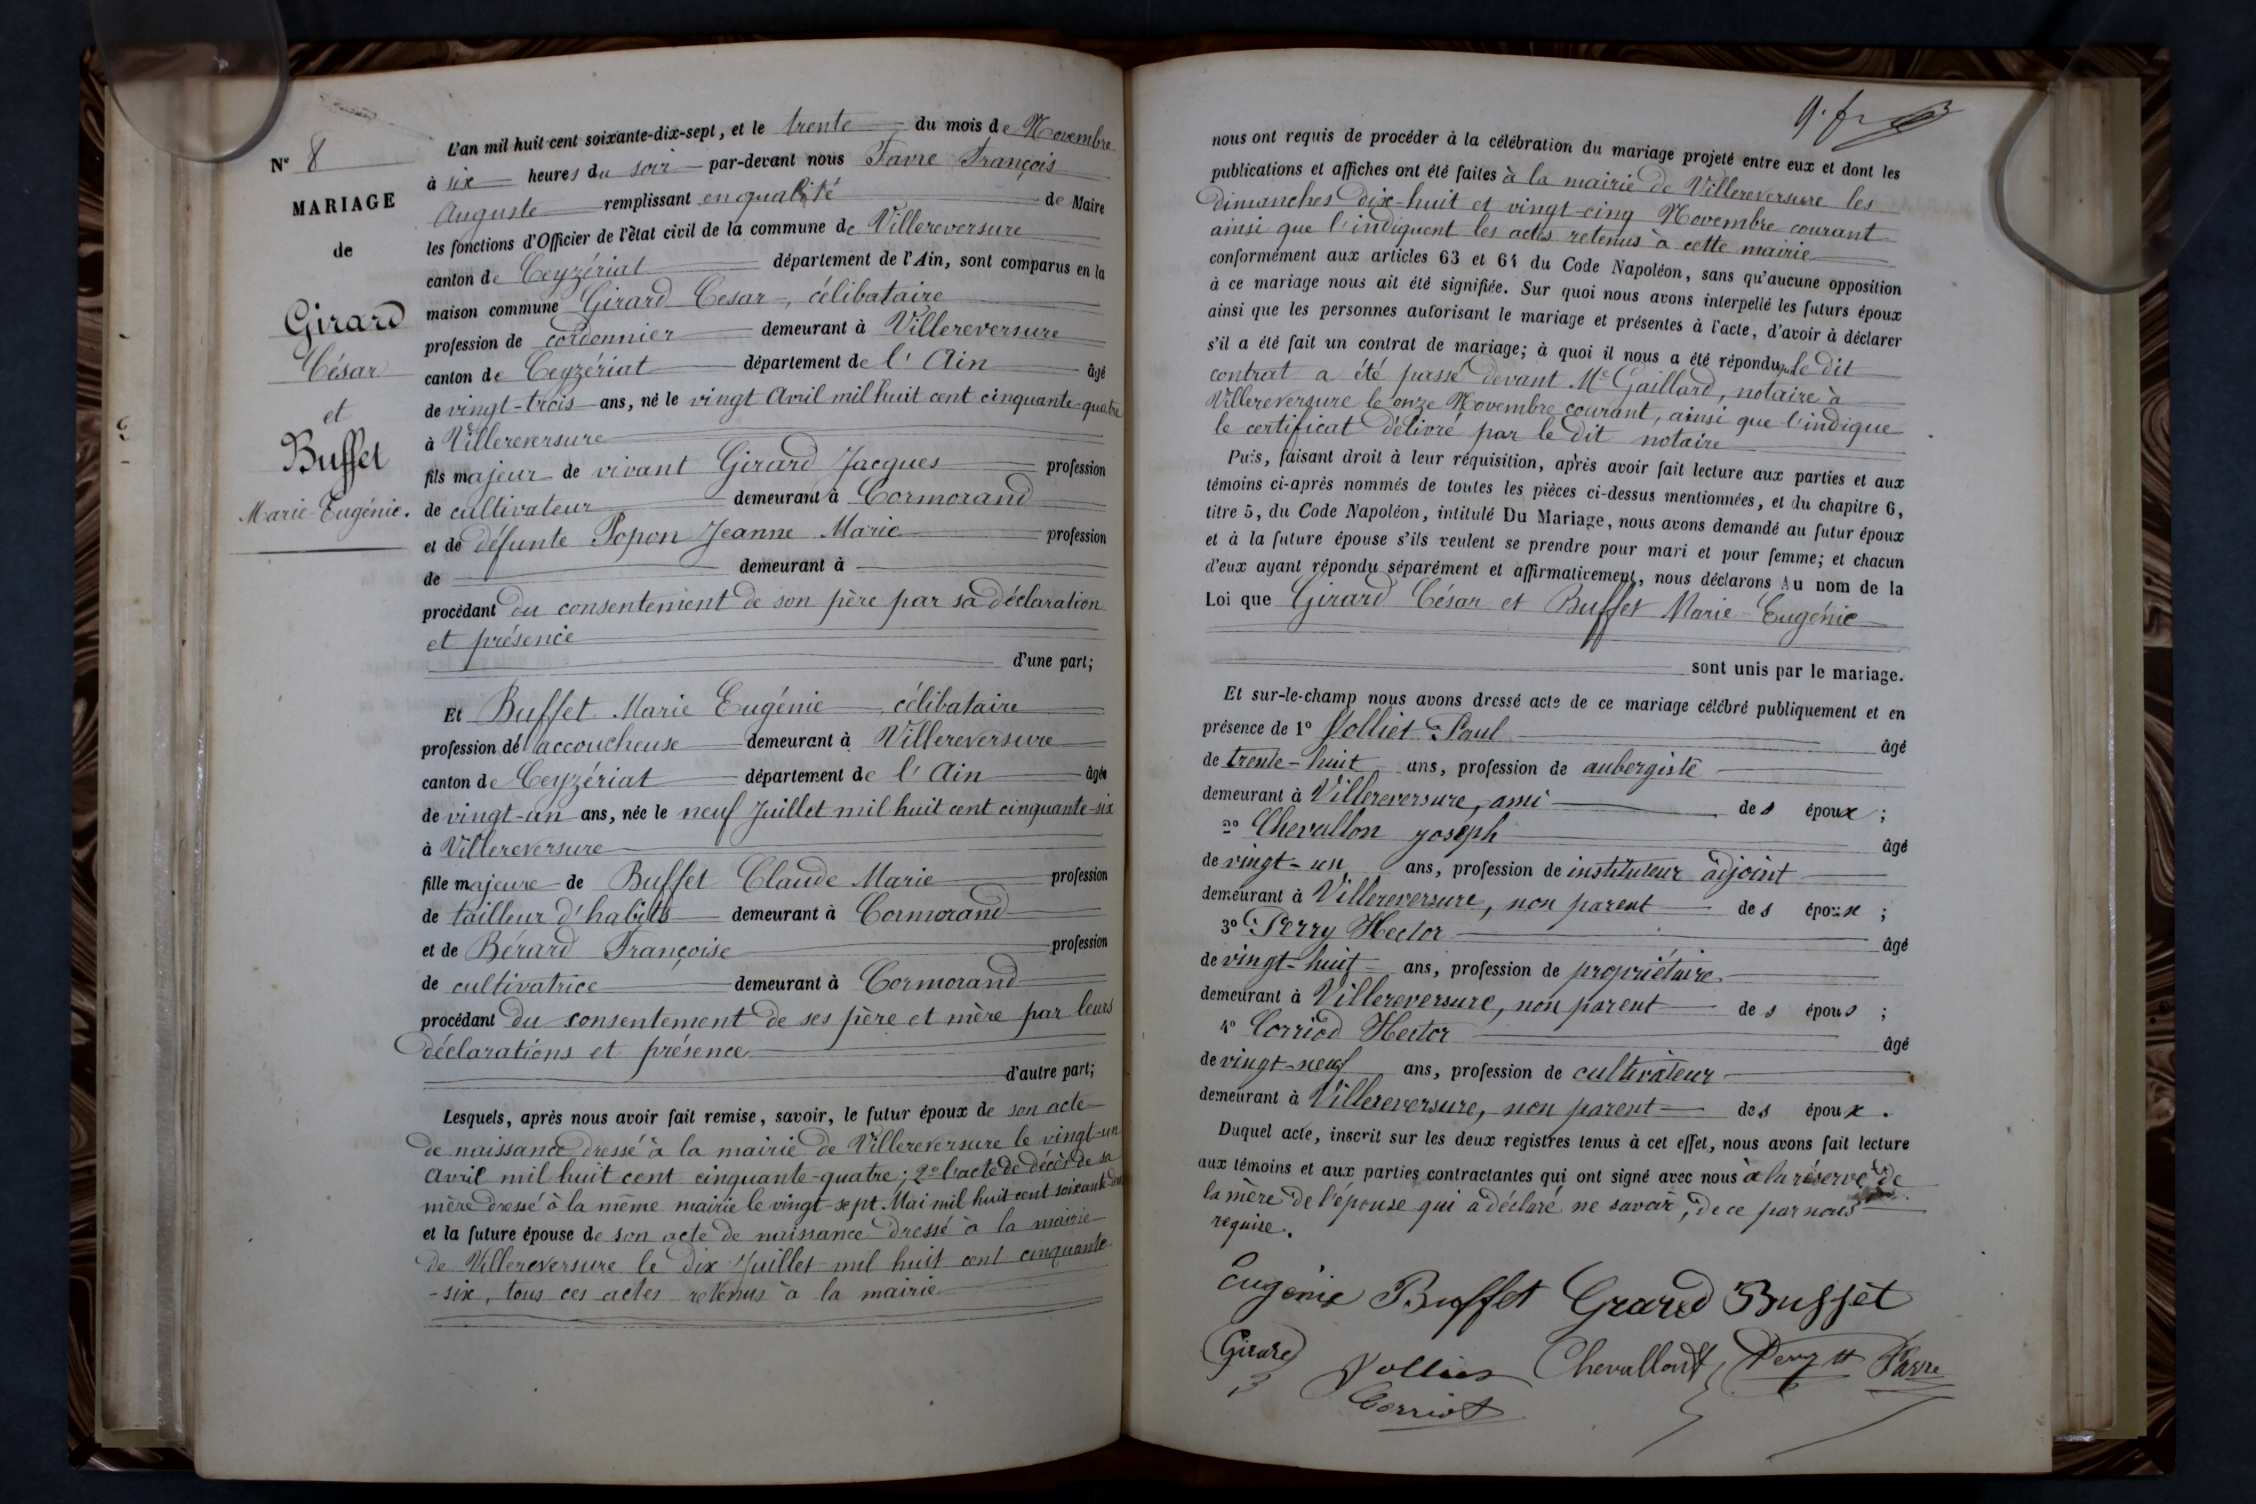 N° 8
MARIAGE
de
Girard
César
et
Buffet
Marie-Eugénie.
L'an mil huit cent soixante-dix-sept, et le trente du mois de Novembre
à six heures du soir par-devant nous Favre François
Auguste remplissant en qualité de Maire
les fonctions d'Officier de l'état civil de la commune de Villereversure
canton de Ceyzériat département de l'Ain, sont comparus en la
maison commune Girard Cesar, célibataire
profession de cordonnier demeurant à Villereversure
canton de Ceyzériat département de l'Ain âgé
de vingt-trois ans, né le vingt Avril mil huit cent cinquante-quatre
à Villereversure
fils majeur de vivant Girard Jacques profession
de cultivateur demeurant à Cormorand
et de défunte Popon Jeanne Marie profession
de demeurant à
procédant du consentement de son père par sa déclaration
et présence
d'une part;
Et Buffet Marie Eugénie célibataire
profession de accoucheuse demeurant à Villereversure
canton de Ceyzériat département de l'Ain âgée
de vingt-un ans, née le neuf Juillet mil huit cent cinquante-six
à Villereversure
fille majeure de Buffet Claude Marie profession
de tailleur d'habits demeurant à Cormorand
et de Bérard Françoise profession
de cultivatrice demeurant à Cormorand
procédant du consentement de ses père et mère par leurs
déclarations et présence
d'autre part;
Lesquels, après nous avoir fait remise, savoir, le futur époux de son acte
de naissance dressé à la mairie de Villereversure le vingt-un
Avril mil huit cent cinquante-quatre; 2° l'acte de décès de sa
mère dressé à la même mairie le vingt-sept Mai mil huit cent soixante
et la future épouse de son acte de naissance dressé à la mairie
de Villereversure le dix Juillet mil huit cent cinquante
-six, tous ces actes retenus à la mairie
nous ont requis de procéder à la célébration du mariage projeté entre eux et dont les
publications et affiches ont été faites à la mairie de Villereversure les
dimanches dix-huit et vingt-cinq Novembre courant
ainsi que l'indiquent les actes retenus à cette mairie
conformément aux articles 63 et 64 du Code Napoléon, sans qu'aucune opposition
à ce mariage nous ait été signifiée. Sur quoi nous avons interpellé les futurs époux
ainsi que les personnes autorisant le mariage et présentes à l'acte, d'avoir à déclarer
s'il a été fait un contrat de mariage; à quoi il nous a été répondu que le dit
contrat a été passé devant Me Gaillard, notaire à
Villereversure le onze Novembre courant, ainsi que l'indique
le certificat délivré par le dit notaire
Puis, faisant droit à leur réquisition, après avoir fait lecture aux parties et aux
témoins ci-après nommés de toutes les pièces ci-dessus mentionnées, et du chapitre 6,
titre 5, du Code Napoléon, intitulé Du Mariage, nous avons demandé au futur époux
et à la future épouse s'ils veulent se prendre pour mari et pour femme; et chacun
d'eux ayant répondu séparément et affirmativement, nous déclarons Au nom de la
Loi que Girard César et Buffet Marie-Eugénie
sont unis par le mariage.
Et sur-le-champ nous avons dressé acte de ce mariage célébré publiquement et en
présence de 1° Volliet Paul âgé
de trente-huit ans, profession de aubergiste
demeurant à Villereversure, ami des époux;
2° Chevallon Joseph âgé
de vingt-un ans, profession de instituteur adjoint
demeurant à Villereversure, non parent des époux;
3° Perry Hector âgé
de vingt-huit ans, profession de propriétaire
demeurant à Villereversure, non parent des époux;
4° Corriod Hector âgé
de vingt-neuf ans, profession de cultivateur
demeurant à Villereversure, non parent des époux.
Duquel acte, inscrit sur les deux registres tenus à cet effet, nous avons fait lecture
aux témoins et aux parties contractantes qui ont signé avec nous à la réserve de
la mère de l'épouse qui a déclaré ne savoir, de ce par nous
requise.
Eugénie Buffet Girard Buffet
Girard Volliet Chevallon Perry H Favre
Corriod